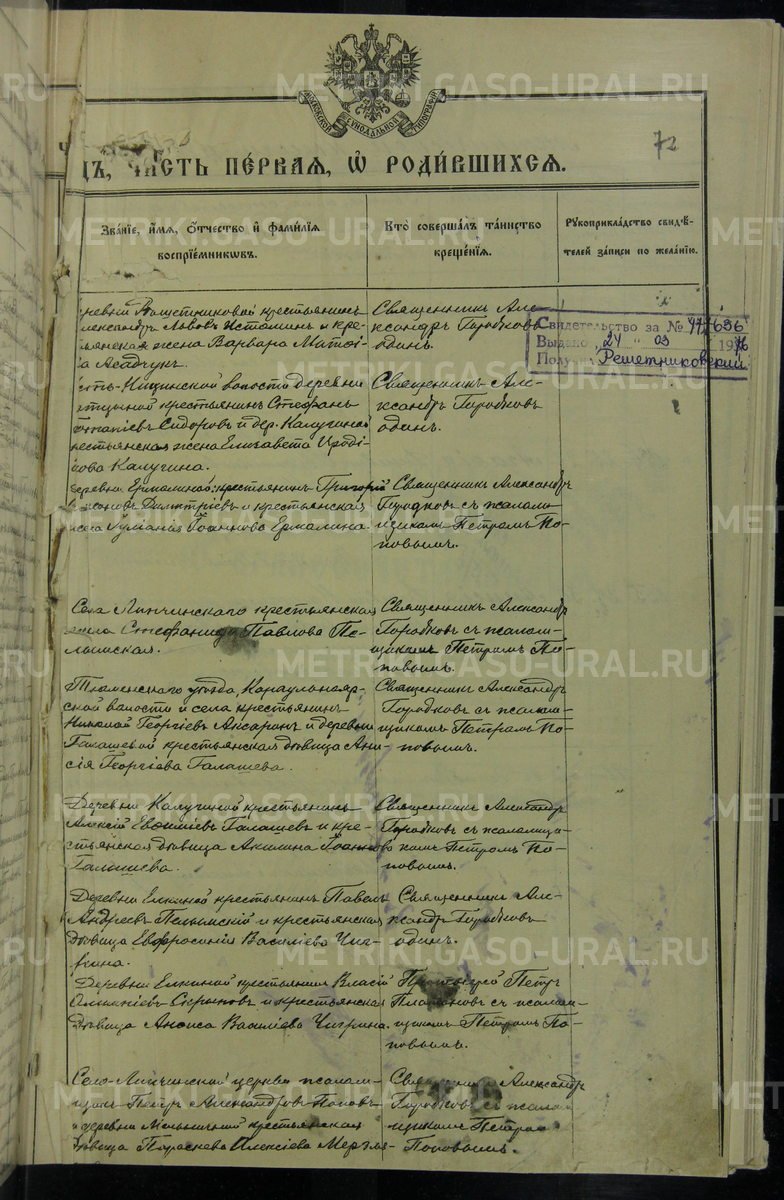 МОСКОВСКОЙ СѴНОДАЛЬНОЙ ТИПОГРАФІИ
72
ЦЪ, ЧАСТЬ ПЕ́РВАЯ, Ѡ РОДИ́ВШИХСЯ.
Зва́ніе, и́мя, ѻ́тчество и҆ фами́лія
воспріе́мниковъ.
Кто̀ соверша́лъ та́инство
креще́нія.
Рꙋкоприкла́дство свидѣ́-
телей за́писи по жела́нію.
Свидетельство за №
Выдано „24 “ 03 19
Полу Решетниковский
еревни крестьянинъ
лександръ Львовъ Истоминъ и кре-
жена Варвара
Священникъ Але-
ксандръ Городковъ
одинъ.
волости деревни
крестьянинъ Стефанъ
Сидоровъ и дер. Калугиной
рестьянская жена Елизавета Ироді-
нова Калугина.
Священникъ Але-
ксандръ Городковъ
одинъ.
еревни Ермолиной крестьянинъ Григорій
Димитріевъ и крестьянская
Іоаннова Ермолина.
Священникъ Александръ
Городковъ съ псалом-
щикомъ Петромъ По-
повымъ.
Села Липчинскаго крестьянская
жена Стефанида Павлова Пе-
лымская.
Священникъ Александръ
Городковъ съ псалом-
щикомъ Петромъ По-
повымъ.
Тюменскаго уѣзда, Караульнояр-
ской волости и села крестьянинъ
Николай Георгіевъ и деревни
Галашевой крестьянская дѣвица Ани-
сія Георгіева Галашева.
Священникъ Александръ
Городковъ съ псалом-
щикомъ Петромъ По-
повымъ.
Деревни Калугиной крестьянинъ
Алексій Евѳиміевъ Галашевъ и кре-
стьянская дѣвица Акилина Іоаннова
Галашева.
Священникъ Александръ
Городковъ съ псаломщи-
комъ Петромъ По-
повымъ.
Деревни Елкиной крестьянинъ Павелъ
Андреевъ Пелымскій и крестьянская
дѣвица Евфросинія Василіева Чиг-
рина.
Священникъ Але-
ксандръ Городковъ
одинъ.
Деревни Елкиной крестьянинъ Власій
и крестьянская
дѣвица Анѳиса Василіева Чигрина.
Протоіерей Петръ
Платоновъ съ псалом-
щикомъ Петромъ По-
повымъ.
Село-Липчинской церкви псалом-
щикъ Петръ Александровъ Поповъ
и деревни Мельничной крестьянская
дѣвица Параскева Алексіева
Священникъ Александръ
Городковъ съ псалом-
щикомъ Петромъ
Поповымъ.
METRIKI.GASO-URAL.RU